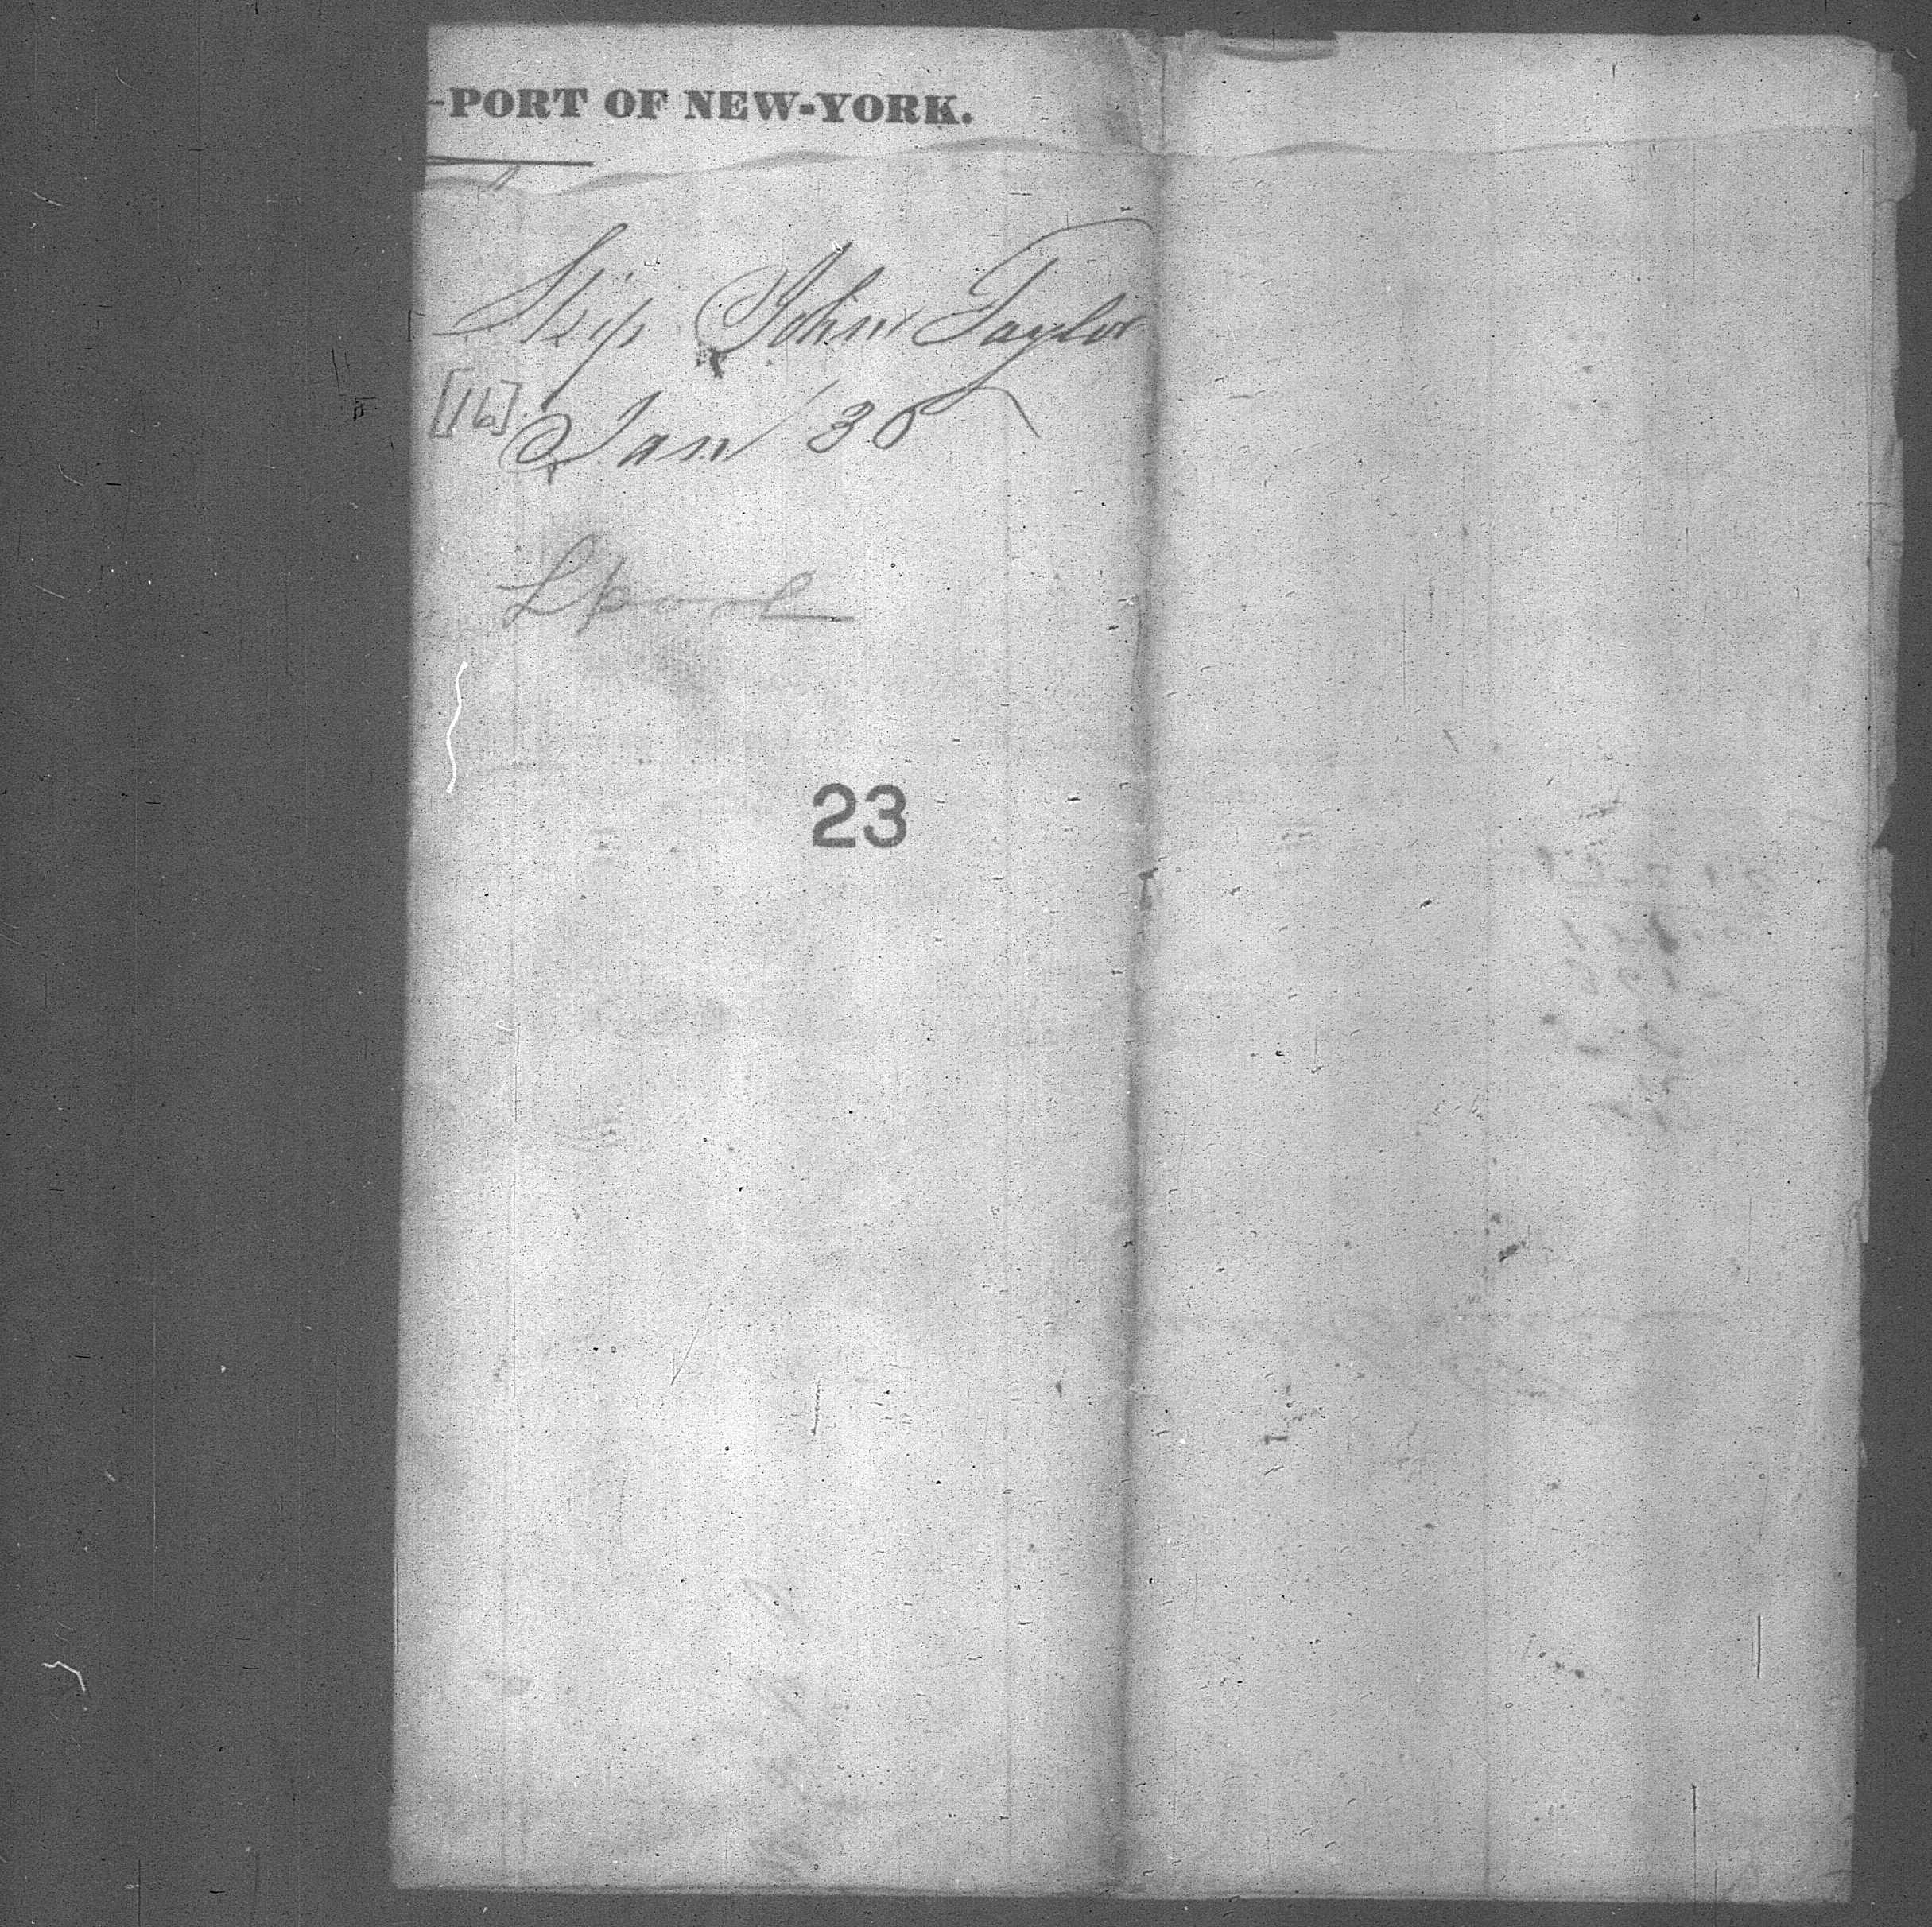 -PORT OF NEW-YORK.
Ship John Taylor
[16] Jan 30
Lpool
23